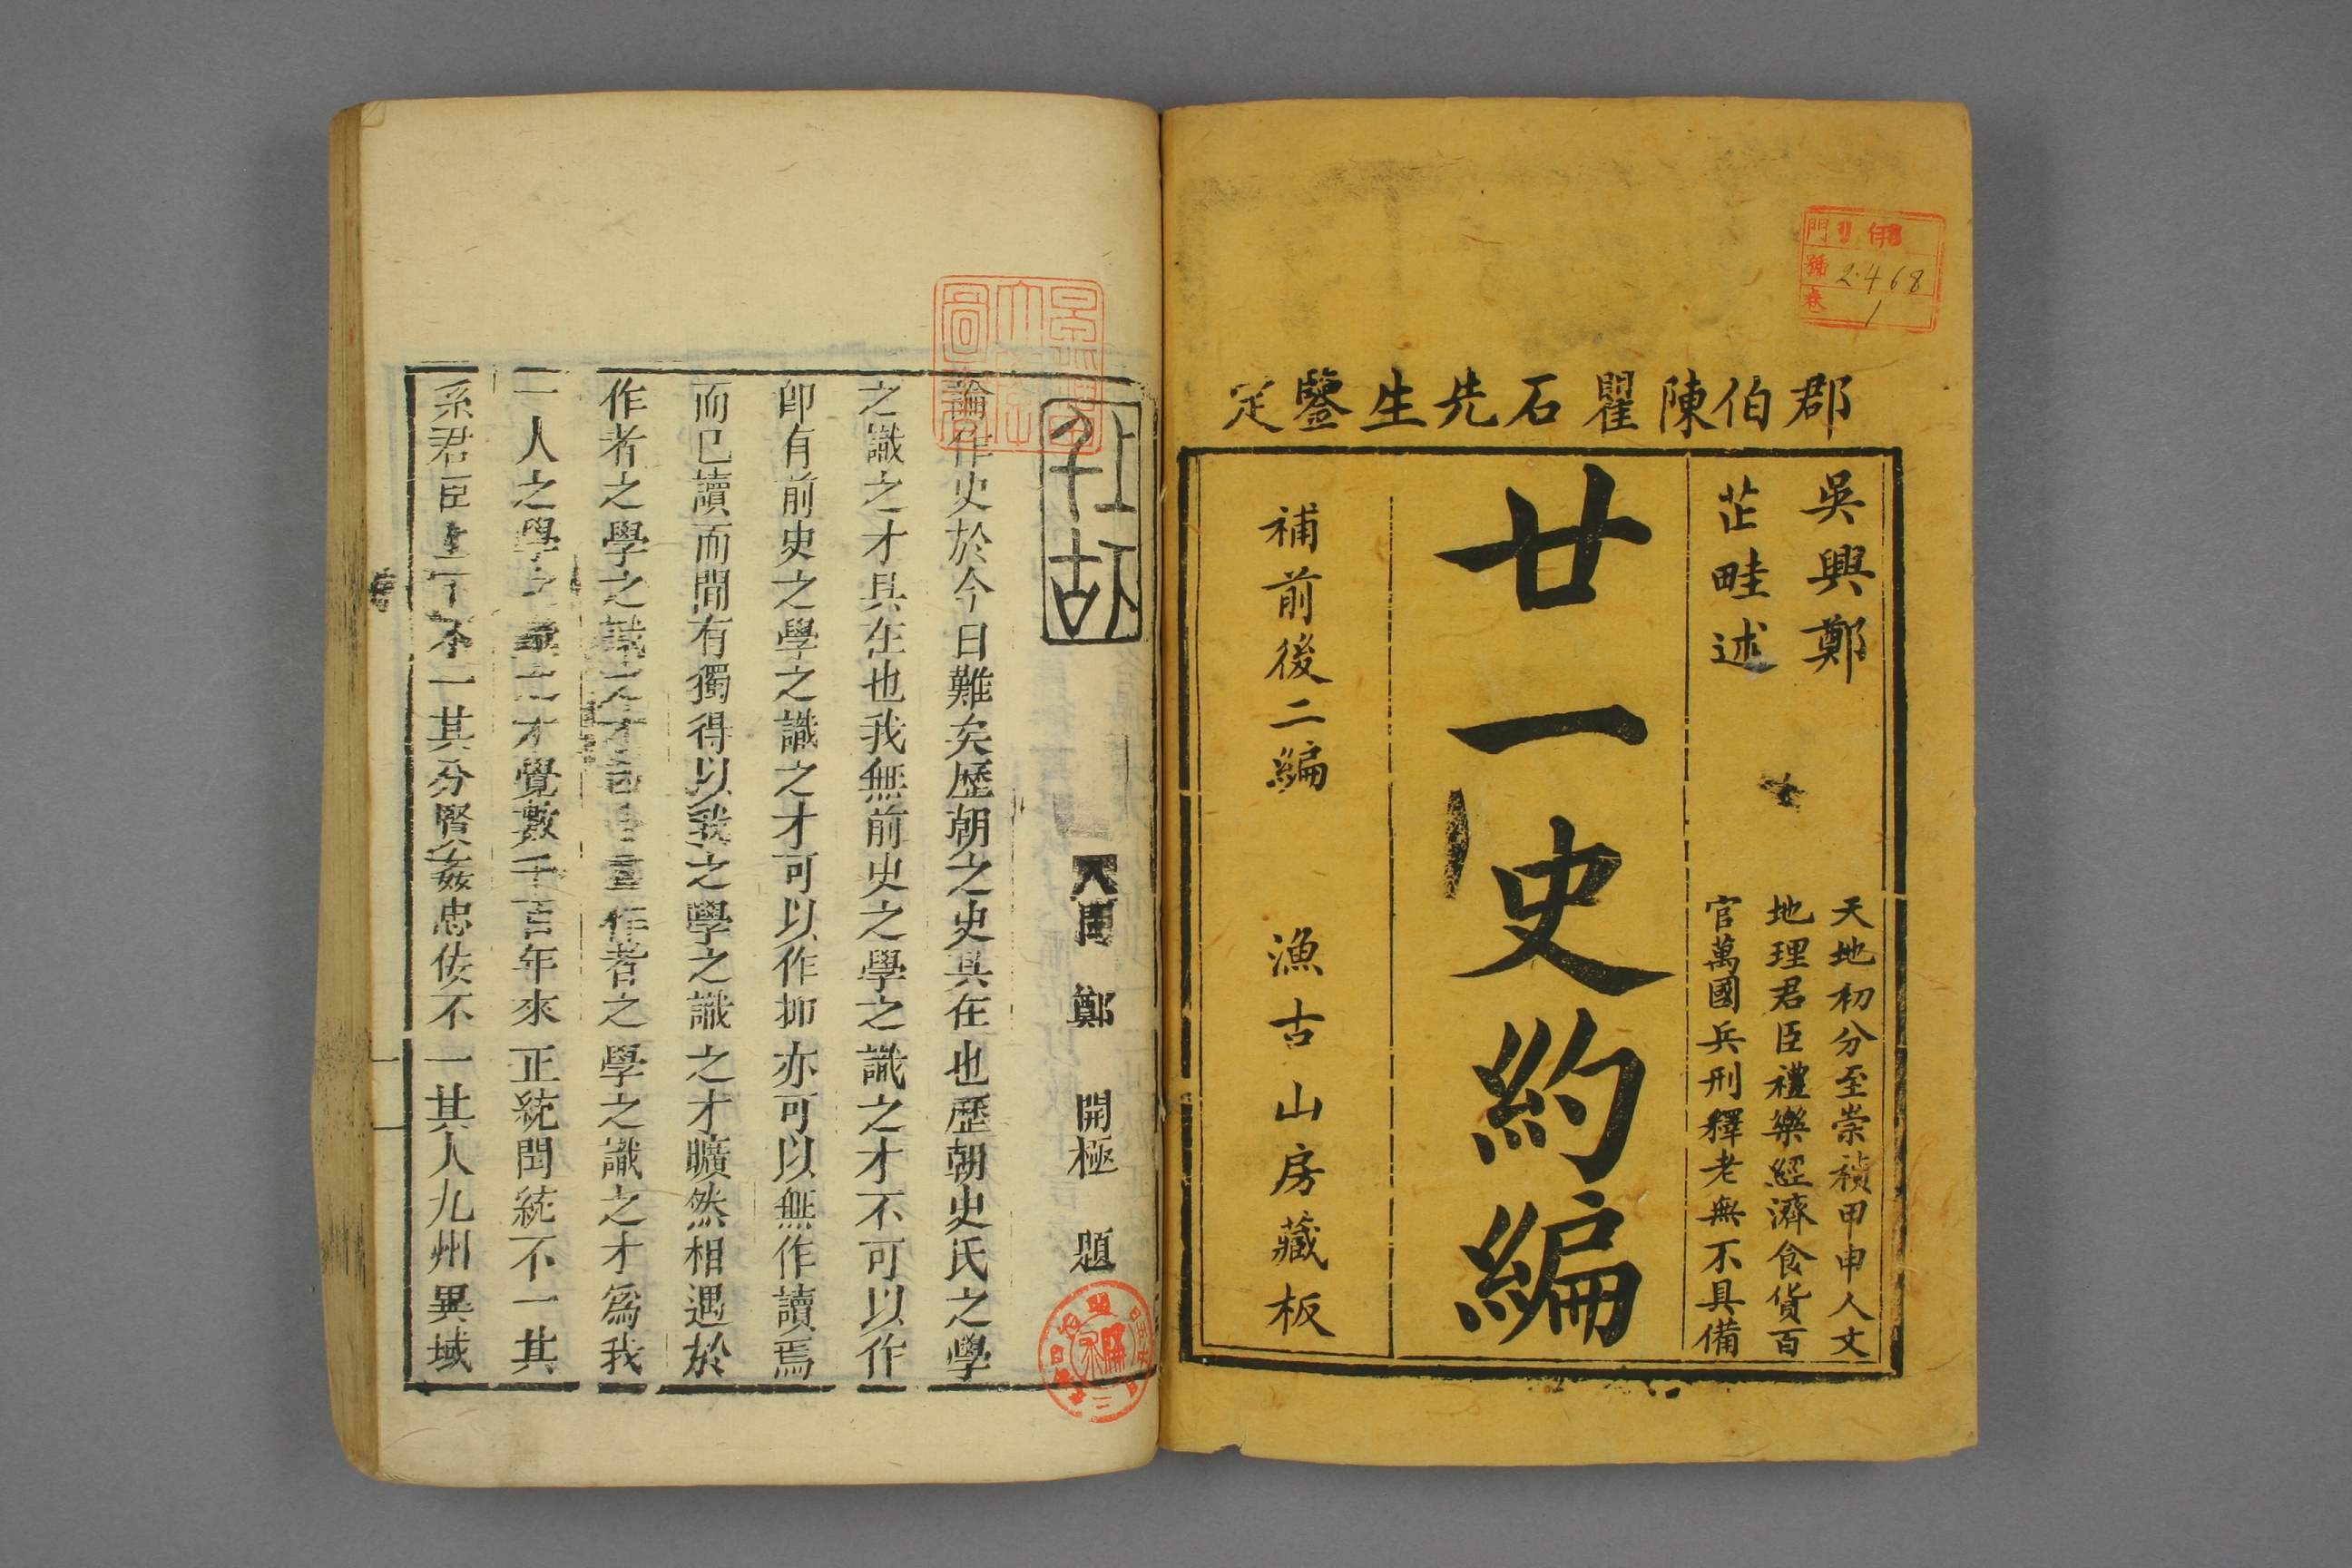 郡伯陳瞿石先生鑒定
吳興鄭
芷畦述
天地初分至崇禎甲申人文
地理君臣禮樂經濟食貨百
官萬國兵刑釋老無不具備
廿一史約編
補前後二編
漁古山房藏板
門
號 2468
1
鄭開極題
作史於今日難矣歷朝之史具在也歷朝史氏之學
之識之才具在也我無前史之學之識之才不可以作
即有前史之學之識之才可以作抑亦可以無作讀焉
而已讀而間有獨得以我之學之識之才曠然相遇於
作者之學之識之才作者之學之識之才為我
一人之學之才覺數千百年來正統閏統不一其
系君臣上下不一其分賢姦忠佞不一其人九州異域